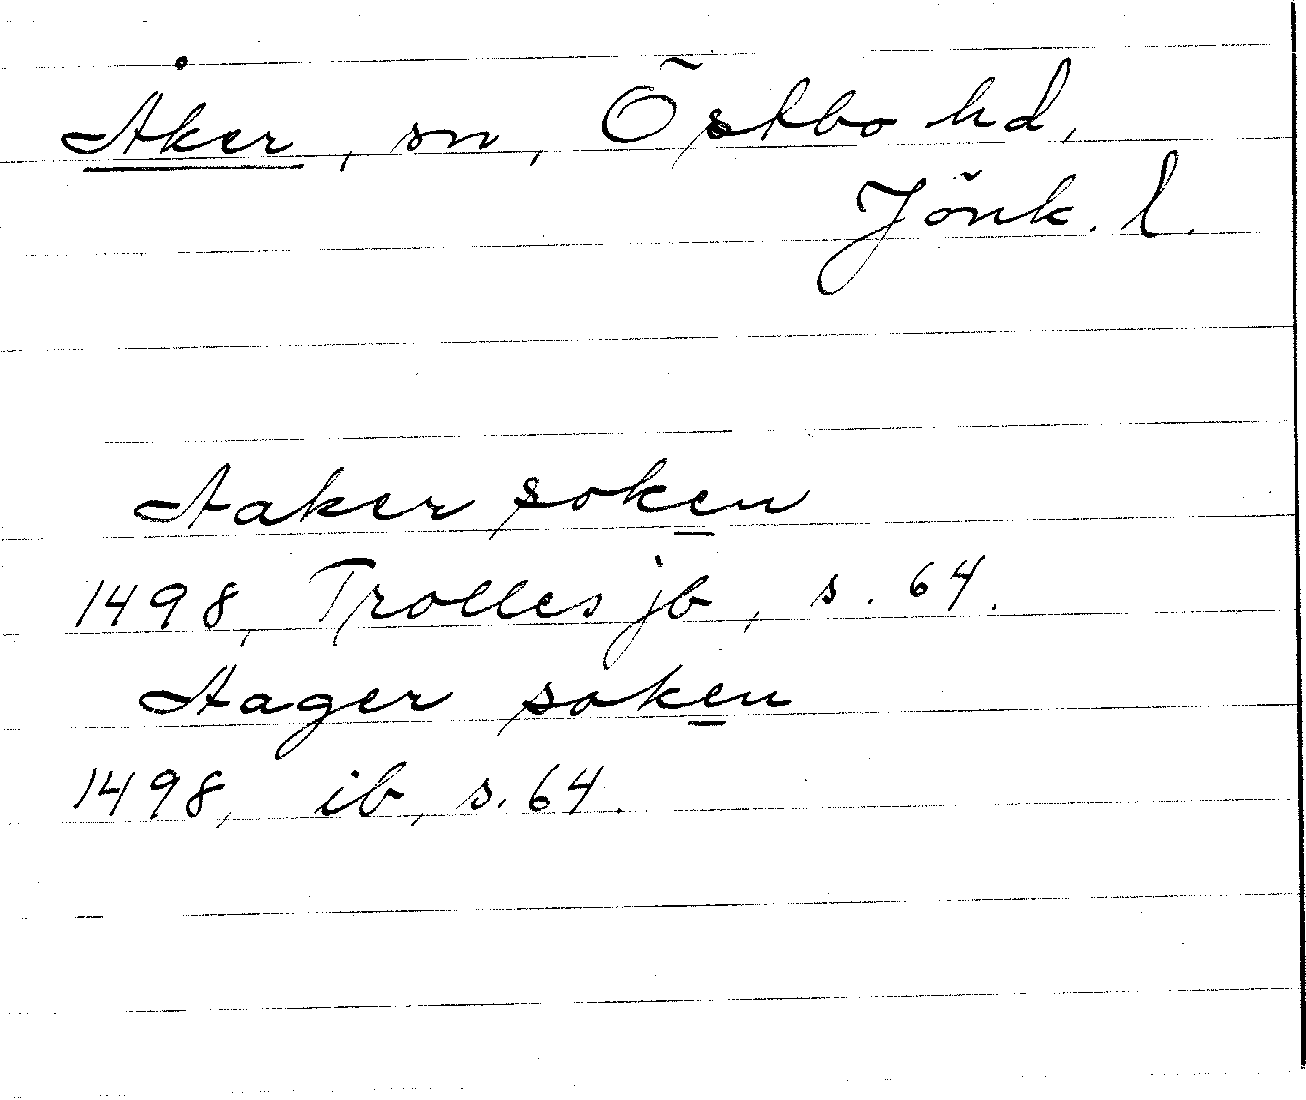 Åker, sn, Östbo hd,
Jönk. l.
Aaker soken
1498, Trolles jb, s. 64.
Aager soken
1498, ib, s. 64.